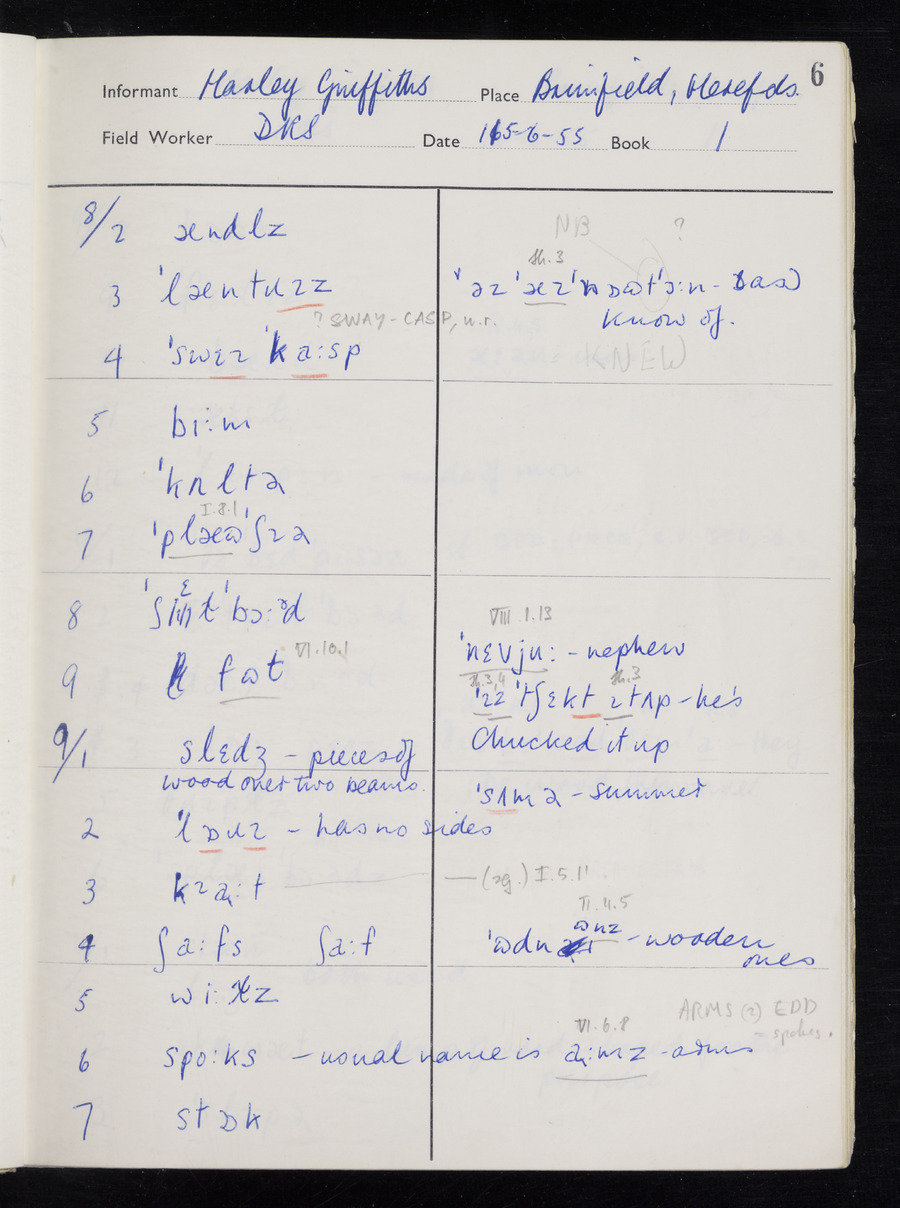 6
Informant Harley Griffiths Place Brimfield, Herefds.
Field Worker DKS Date 15-6-55 Book 1
8/2 ændlz
NB ?
sh.3
3 ˈlæntɹɪz
? SWAY-CASP, n.r.
know of.
KNEW
4 ˈswɛɪ ˈka:sp
5 bi:m
6 ˈkʌltə
I.8.1
7 ˈplæʊˈʃɪə
8 bɔ:ᵊd
VIII.1.13
9 fʊt VI.10.1
ˈnɛvju: - nephew
sh.3,4 sh.3
ˈtʃɛkt ɪtʌp - he's
chucked it up
9/1 slɛdʒ - pieces of
wood over two beams.
ˈsʌmə - summer
2 - has no sides
3 kɹa:t — (sg.) I.5.11
VI.4.5
4 ʃa:fs ʃa:f
ˈʊdn ʊnz - wooden
ones
5 wi:lz
ARMS (2) EDD
spokes.
VI.6.8
6 spo:ks - usual name is a:mz - arms
7 stɒk